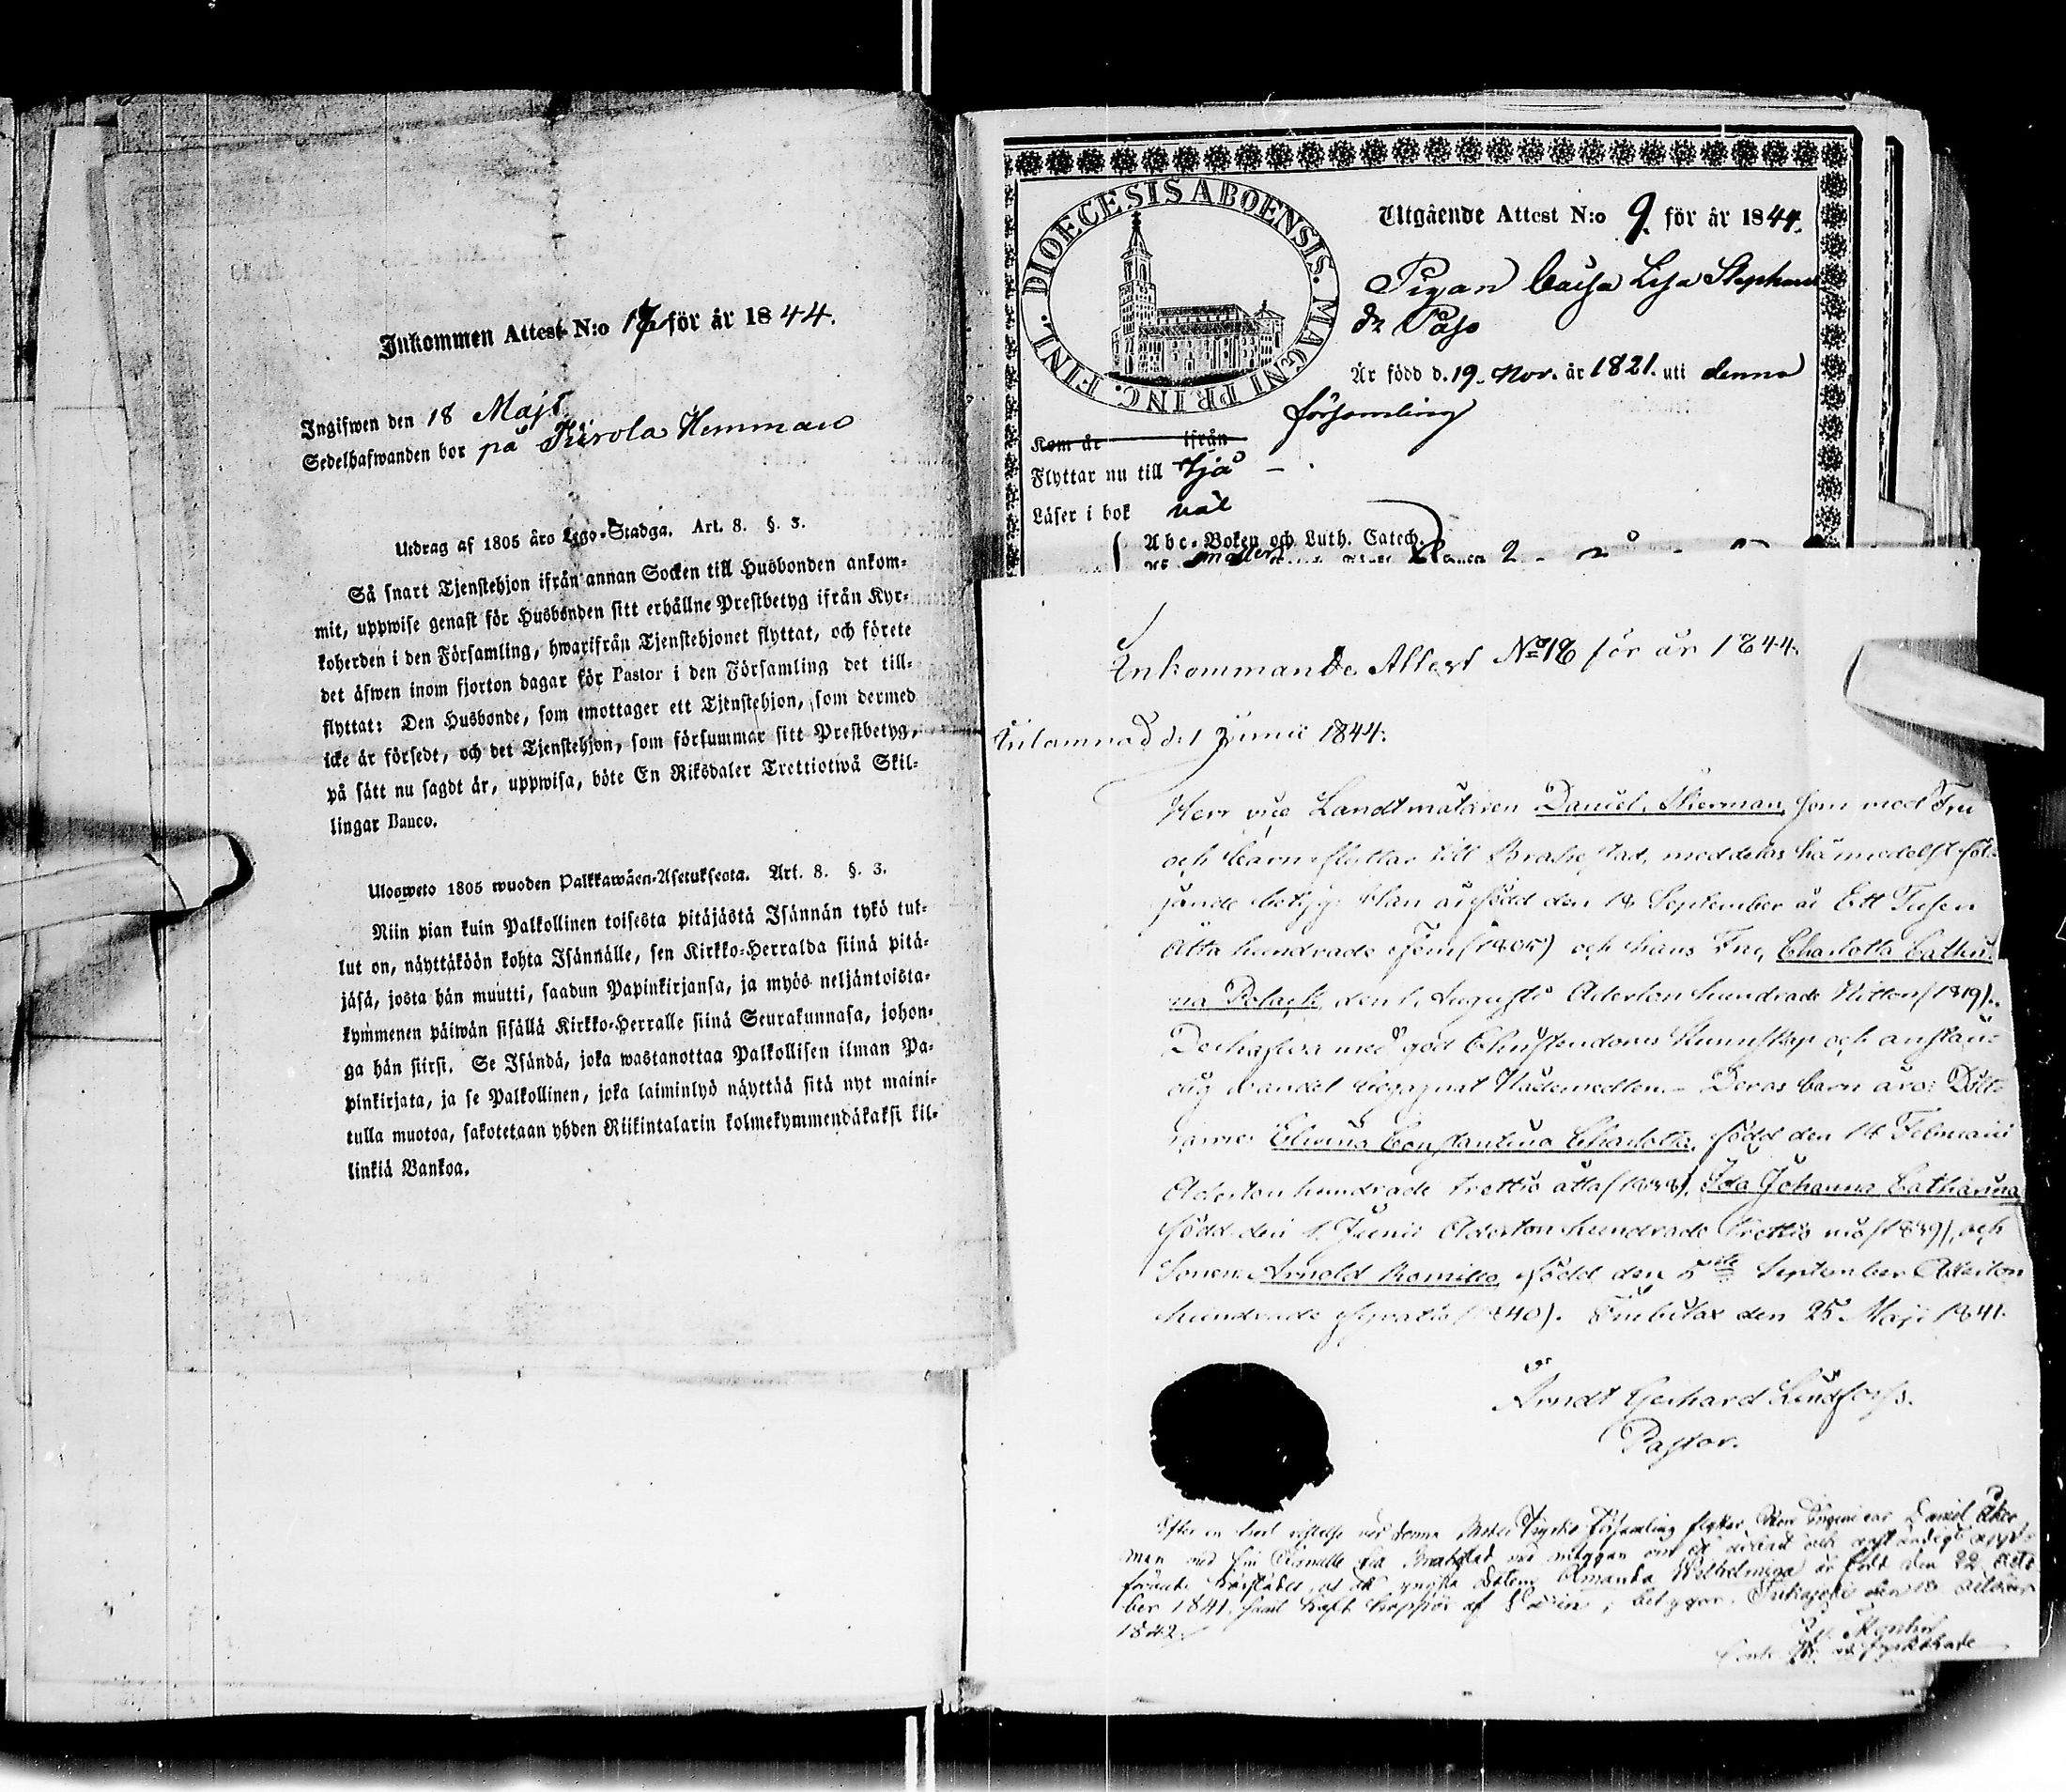 Inkommen Attest N:o 17 för år 1844.
Ingifwen den 18 Maji
Sedelhafwanden bor på Kärola Hemman
Utdrag af 1805 års Lego-Stadga. Art. 8. §. 3.
Så snart Tjenstehjon ifrån annan Socken till Husbonden ankom-
mit, uppwise genast för Husbonden sitt erhållne Prestbetyg ifrån Kyr-
koherden i den Församling, hwarifrån Tjenstehjonet flyttat, och förete
det äfwen inom fjorton dagar för Pastor i den Församling det till-
flyttat: Den Husbonde, som emottager ett Tjenstehjon, som dermed
icke är försedt, och det Tjenstehjon, som försummar sitt Prestbetyg,
på sätt nu sagdt är, uppwisa, böte En Riksdaler Trettiotwå Skil-
lingar Banco.
Ulosweto 1805 wuoden Palkkawäen-Asetuksesta. Art. 8. §. 3.
Niin pian kuin Palkollinen toisesta pitäjästä Isännän tykö tul-
lut on, näyttäköön kohta Isännälle, sen Kirkko-Herralda siinä pitä-
jäsä, josta hän muutti, saadun Papinkirjansa, ja myös neljäntoista-
kymmenen päiwän sisällä Kirkko-Herralle siinä Seurakunnasa, johon-
ga hän siirsi. Se Isändä, joka wastanottaa Palkollisen ilman Pa-
pinkirjata, ja se Palkollinen, joka laiminlyö näyttää sitä nyt maini-
tulla muotoa, sakotetaan yhden Riikintalarin kolmekymmendäkaksi kil-
linkiä Bankoa.
DIOECESIS ABOENSIS. MAGNI PRINC. FINL.
Utgående Attest N:o 9 för år 1844.
Pigan Caisa Lisa Stephans
dr Pajo
Är född d. 19. Nov. år 1821. uti denna
församling
Kom år ifrån
Flyttar nu till
Läser i bok väl
Abc-Boken och Luth. Catech.
Inkommande Attest No 18 för år 1844.
Inlämnad d. 1 Junii 1844.
Herr vice Landtmätaren Daniel som med Fru
och barn flyttar till Brahestad, meddelas härmedelst föl-
jande betyg: Han är född den 18 September år Ett Tusen
Åtta hundrade Fem (1805) och hans Fru, Charlotta Cathri-
na Polack, den 1. Augusti Aderton hundrade Nitton (1819).
De hafwa med god Christendoms Kunskap och anstän-
dig wandel begagnat Nådemedlen. - Deras barn äro: Dött-
rarne Elwina Constantina Charlotta, född den 14 Februarii
Aderton hundrade trettio åtta (1838), Ida Johanna Catharina
född den 1. Junii Aderton hundrade trettio nio (1839), och
Sonen Arnold Romillo, född den 5te September Aderton
hundrade fyratio (1840). Embulax den 25 Maji 1841.
Arndt Gerhard Lindforss.
Pastor.
Efter en kort wistelse wid denna församling flyttar Herr Ingenieur Daniel Åker-
man med sin Famille till Brahestad,
yngsta dottern Amanda Wilhelmina är född den 22 Octo-
ber 1841. samt haft koppor af betygar. den 18 October
1842.